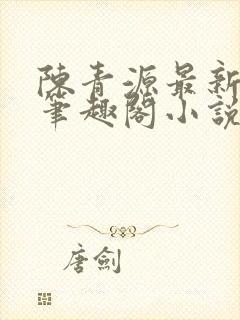 陳青源最新
筆趣閣小說
唐劍